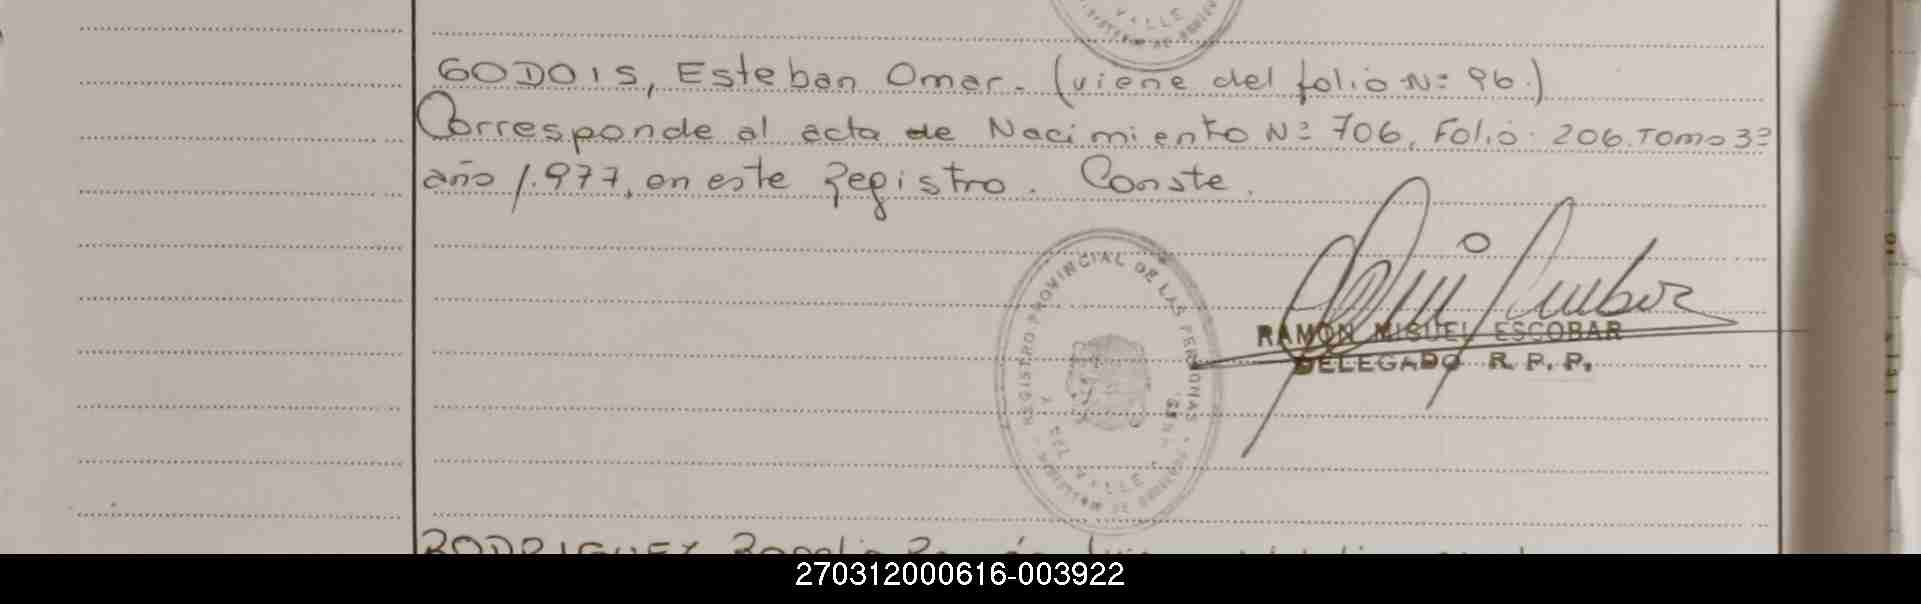 VALLE
GODOIS, Esteban Omar. (viene del folio Nº 96.)
Corresponde al acta de Nacimiento Nº 706, Folio: 206. Tomo 3º
año 1.977, en este Registro. Conste.
REGISTRO PROVINCIAL DE LAS PERSONAS
DEL VALLE
RAMON MIGUEL ESCOBAR
DELEGADO R. P. P.
RODRIGUEZ
270312000616-003922